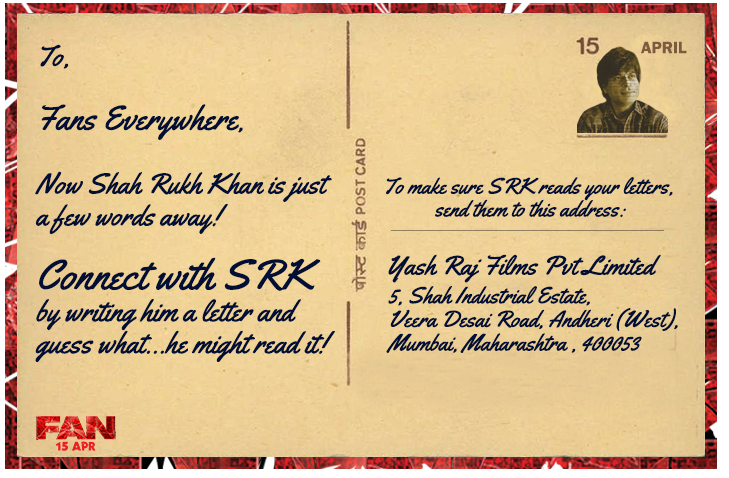 To,
Fans Everywhere,
Now Shah Rukh Khan is just
a few words away!
Connect with SRK
by writing him a letter and
guess what...he might read it!
FAN
15 APR
पोस्ट कार्ड POST CARD
15 APRIL
To make sure SRK reads your letters,
send them to this address:
Yash Raj Films Pvt Limited
5, Shah Industrial Estate,
Veera Desai Road, Andheri (West),
Mumbai, Maharashtra , 400053